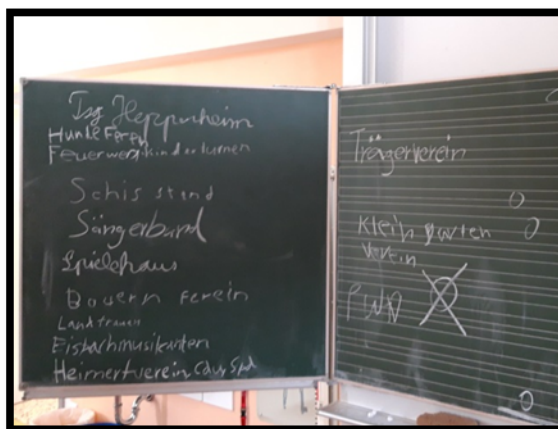 Tsg Heppenheim
Hunde Feren
Feuerwerkinderturnen
Schis stand
Sängerbund
Spielehaus
Bauern ferein
Landfrauen
Eisbachmusikanten
Heimertverein Cdu, Spd
Trägerverein
Kleingarten
Verein
FWA